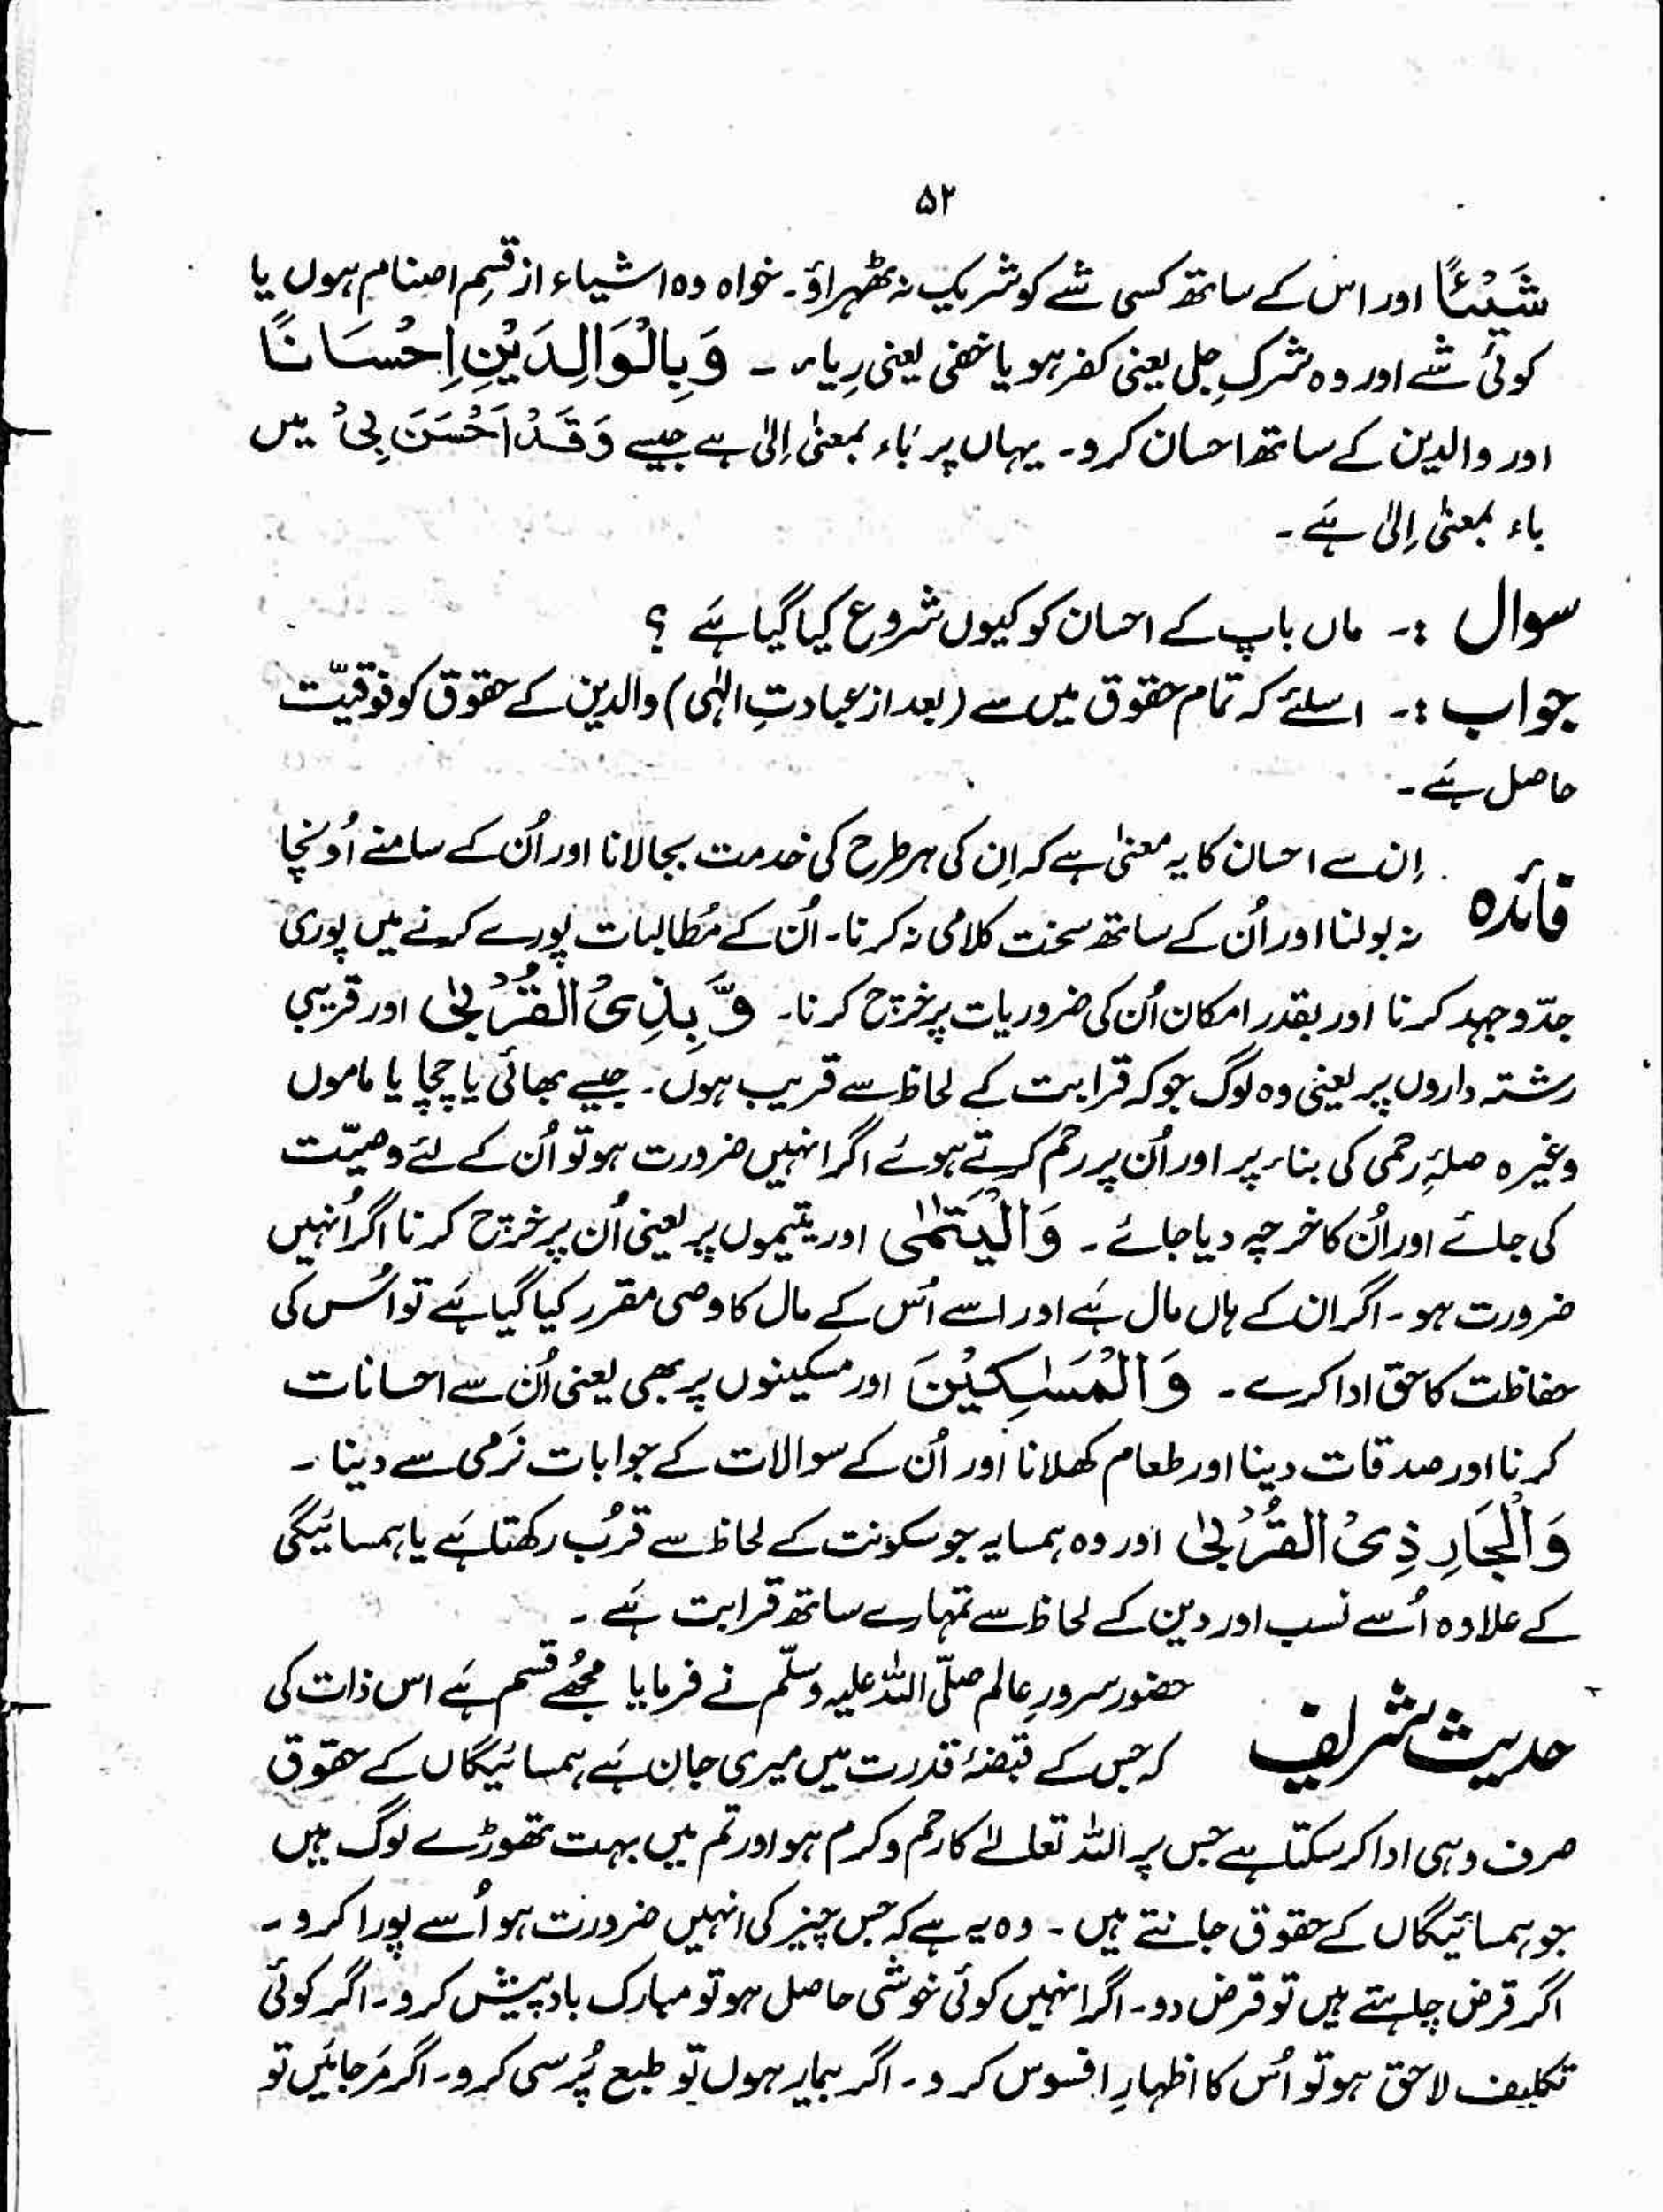 ۵۲
شَيْئًا اور اس کے ساتھ کسی شے کو شریک نہ ٹھہراؤ۔ خواہ وہ اشیاء از قسمِ اصنام ہوں یا
کوئی شے اور وہ شرکِ جلی یعنی کفر ہو یا خفی یعنی رِیاء۔ وَبِالْوَالِدَيْنِ اِحْسَانًا
اور والدین کے ساتھ احسان کرو۔ یہاں پر بَاء بمعنٰی اِلیٰ ہے جیسے وَقَدْ اَحْسَنَ بِیْ میں
باء بمعنٰی اِلیٰ ہَے۔
سوال :۔ ماں باپ کے احسان کو کیوں شروع کیا گیا ہَے ؟
جواب :۔ اسلئے کہ تمام حقوق میں سے (بعد از عبادتِ الہٰی) والدین کے حقوق کو فوقیّت
حاصل ہَے۔
فائدہ . اِن سے احسان کا یہ معنیٰ ہے کہ اِن کی ہر طرح کی خدمت بجا لانا اور اُن کے سامنے اُونچا
نہ بولنا اور اُن کے ساتھ سخت کلامی نہ کرنا۔ اُن کے مُطالبات پورے کرنے میں پوری
جدّوجہد کرنا اور بقدر امکان اُن کی ضروریات پر خرَچ کرنا۔ وَّبِذِی الْقُرْبٰی اور قریبی
رشتہ داروں پر یعنی وہ لوگ جو کہ قرابت کے لحاظ سے قریب ہوں۔ جیسے بھائی یا چچا یا ماموں
وغیرہ صلۂِ رحمی کی بناء پر اور اُن پر رحم کرتے ہوئے اگر انہیں ضرورت ہو تو اُن کے لئے وصیّت
کی جائے اور اُن کا خرچہ دیا جائے۔ وَالْیَتٰمٰی اور یتیموں پر یعنی اُن پر خرَچ کرنا اگر اُنہیں
ضرورت ہو۔ اگر ان کے ہاں مال ہَے اور اسے اُس کے مال کا وصی مقرر کیا گیا ہَے تو اُس کی
حفاظت کا حق ادا کرے۔ وَالْمَسٰکِیْنَ اور مسکینوں پر بھی یعنی اُن سے احسانات
کرنا اور صدقات دینا اور طعام کھلانا اور اُن کے سوالات کے جوابات نَرمی سے دینا۔
وَالْجَارِ ذِی الْقُرْبٰی اور وہ ہمسایہ جو سکونت کے لحاظ سے قُرب رکھتا ہَے یا ہمسائیگی
کے علاوہ اُسے نسب اور دین کے لحاظ سے تمہارے ساتھ قرابت ہَے۔
حدیث شریف حضور سرورِ عالم صلّی اللہ علیہ وسلّم نے فرمایا مجُھے قسم ہَے اس ذات کی
کہ جس کے قبضۂ قدرت میں میری جان ہَے ہمسائیگاں کے حقوق
صرف وہی ادا کر سکتا ہے جس پر اللہ تعالےٰ کا رحم و کرم ہو اور تم میں بہت تھوڑے لوگ ہیں
جو ہمسائیگاں کے حقوق جانتے ہیں۔ وہ یہ ہے کہ جس چیز کی انہیں ضرورت ہو اُسے پورا کرو۔
اگر قرض چاہتے ہیں تو قرض دو۔ اگر انہیں کوئی خوشی حاصل ہو تو مبارک باد پیش کرو۔ اگر کوئی
تکلیف لاحق ہو تو اُس کا اظہارِ افسوس کرو۔ اگر بیمار ہوں تو طبع پُرسی کرو۔ اگر مَرجائیں تو